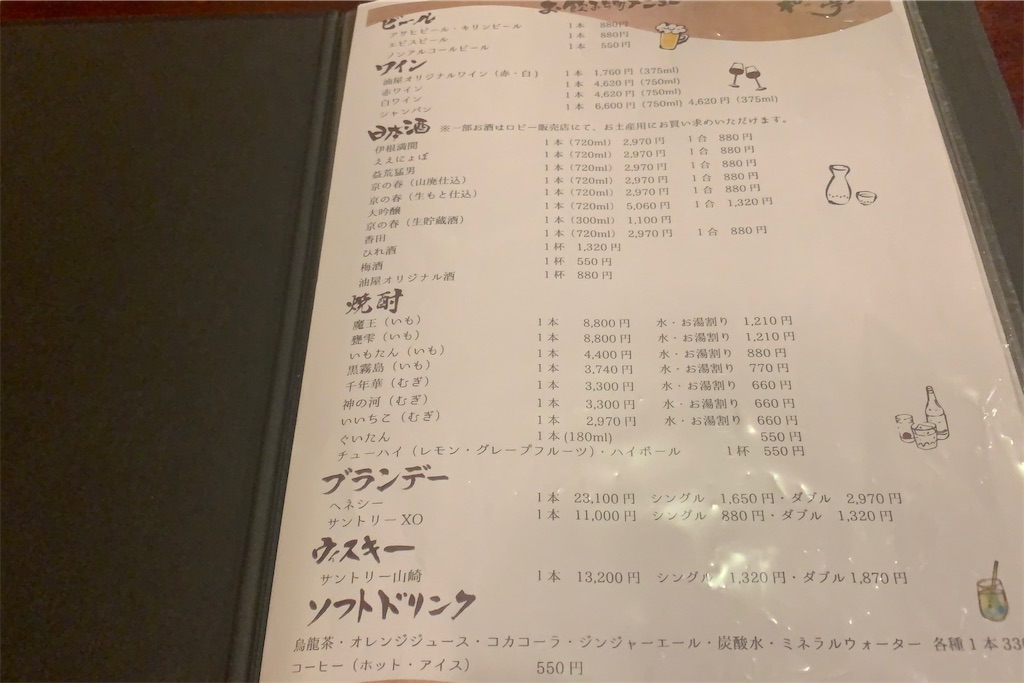 ビール
アサヒビール・キリンビール 1本 880円
エビスビール 1本 880円
ノンアルコールビール 1本 550円
ワイン
油屋オリジナルワイン（赤・白） 1本 1,760円（375ml）
赤ワイン 1本 4,620円（750ml）
白ワイン 1本 4,620円（750ml）
シャンパン 1本 6,600円（750ml） 4,620円（375ml）
日本酒 ※一部お酒はロビー販売店にて、お土産用にお買い求めいただけます。
伊根満開 1本（720ml） 2,970円 1合 880円
ええにょぼ 1本（720ml） 2,970円 1合 880円
益荒猛男 1本（720ml） 2,970円 1合 880円
京の春（山廃仕込） 1本（720ml） 2,970円 1合 880円
京の春（生もと仕込） 1本（720ml） 2,970円 1合 880円
大吟醸 1本（720ml） 5,060円 1合 1,320円
京の春（生貯蔵酒） 1本（300ml） 1,100円
香田 1本（720ml） 2,970円 1合 880円
ひれ酒 1杯 1,320円
梅酒 1杯 550円
油屋オリジナル酒 1杯 880円
焼酎
魔王（いも） 1本 8,800円 水・お湯割り 1,210円
甕雫（いも） 1本 8,800円 水・お湯割り 1,210円
いもたん（いも） 1本 4,400円 水・お湯割り 880円
黒霧島（いも） 1本 3,740円 水・お湯割り 770円
千年華（むぎ） 1本 3,300円 水・お湯割り 660円
神の河（むぎ） 1本 3,300円 水・お湯割り 660円
いいちこ（むぎ） 1本 2,970円 水・お湯割り 660円
ぐいたん 1本(180ml) 550円
チューハイ（レモン・グレープフルーツ）・ハイボール 1杯 550円
ブランデー
ヘネシー 1本 23,100円 シングル 1,650円・ダブル 2,970円
サントリーXO 1本 11,000円 シングル 880円・ダブル 1,320円
ウィスキー
サントリー山崎 1本 13,200円 シングル 1,320円・ダブル 1,870円
ソフトドリンク
烏龍茶・オレンジジュース・コカコーラ・ジンジャーエール・炭酸水・ミネラルウォーター 各種1本 330
コーヒー（ホット・アイス） 550円